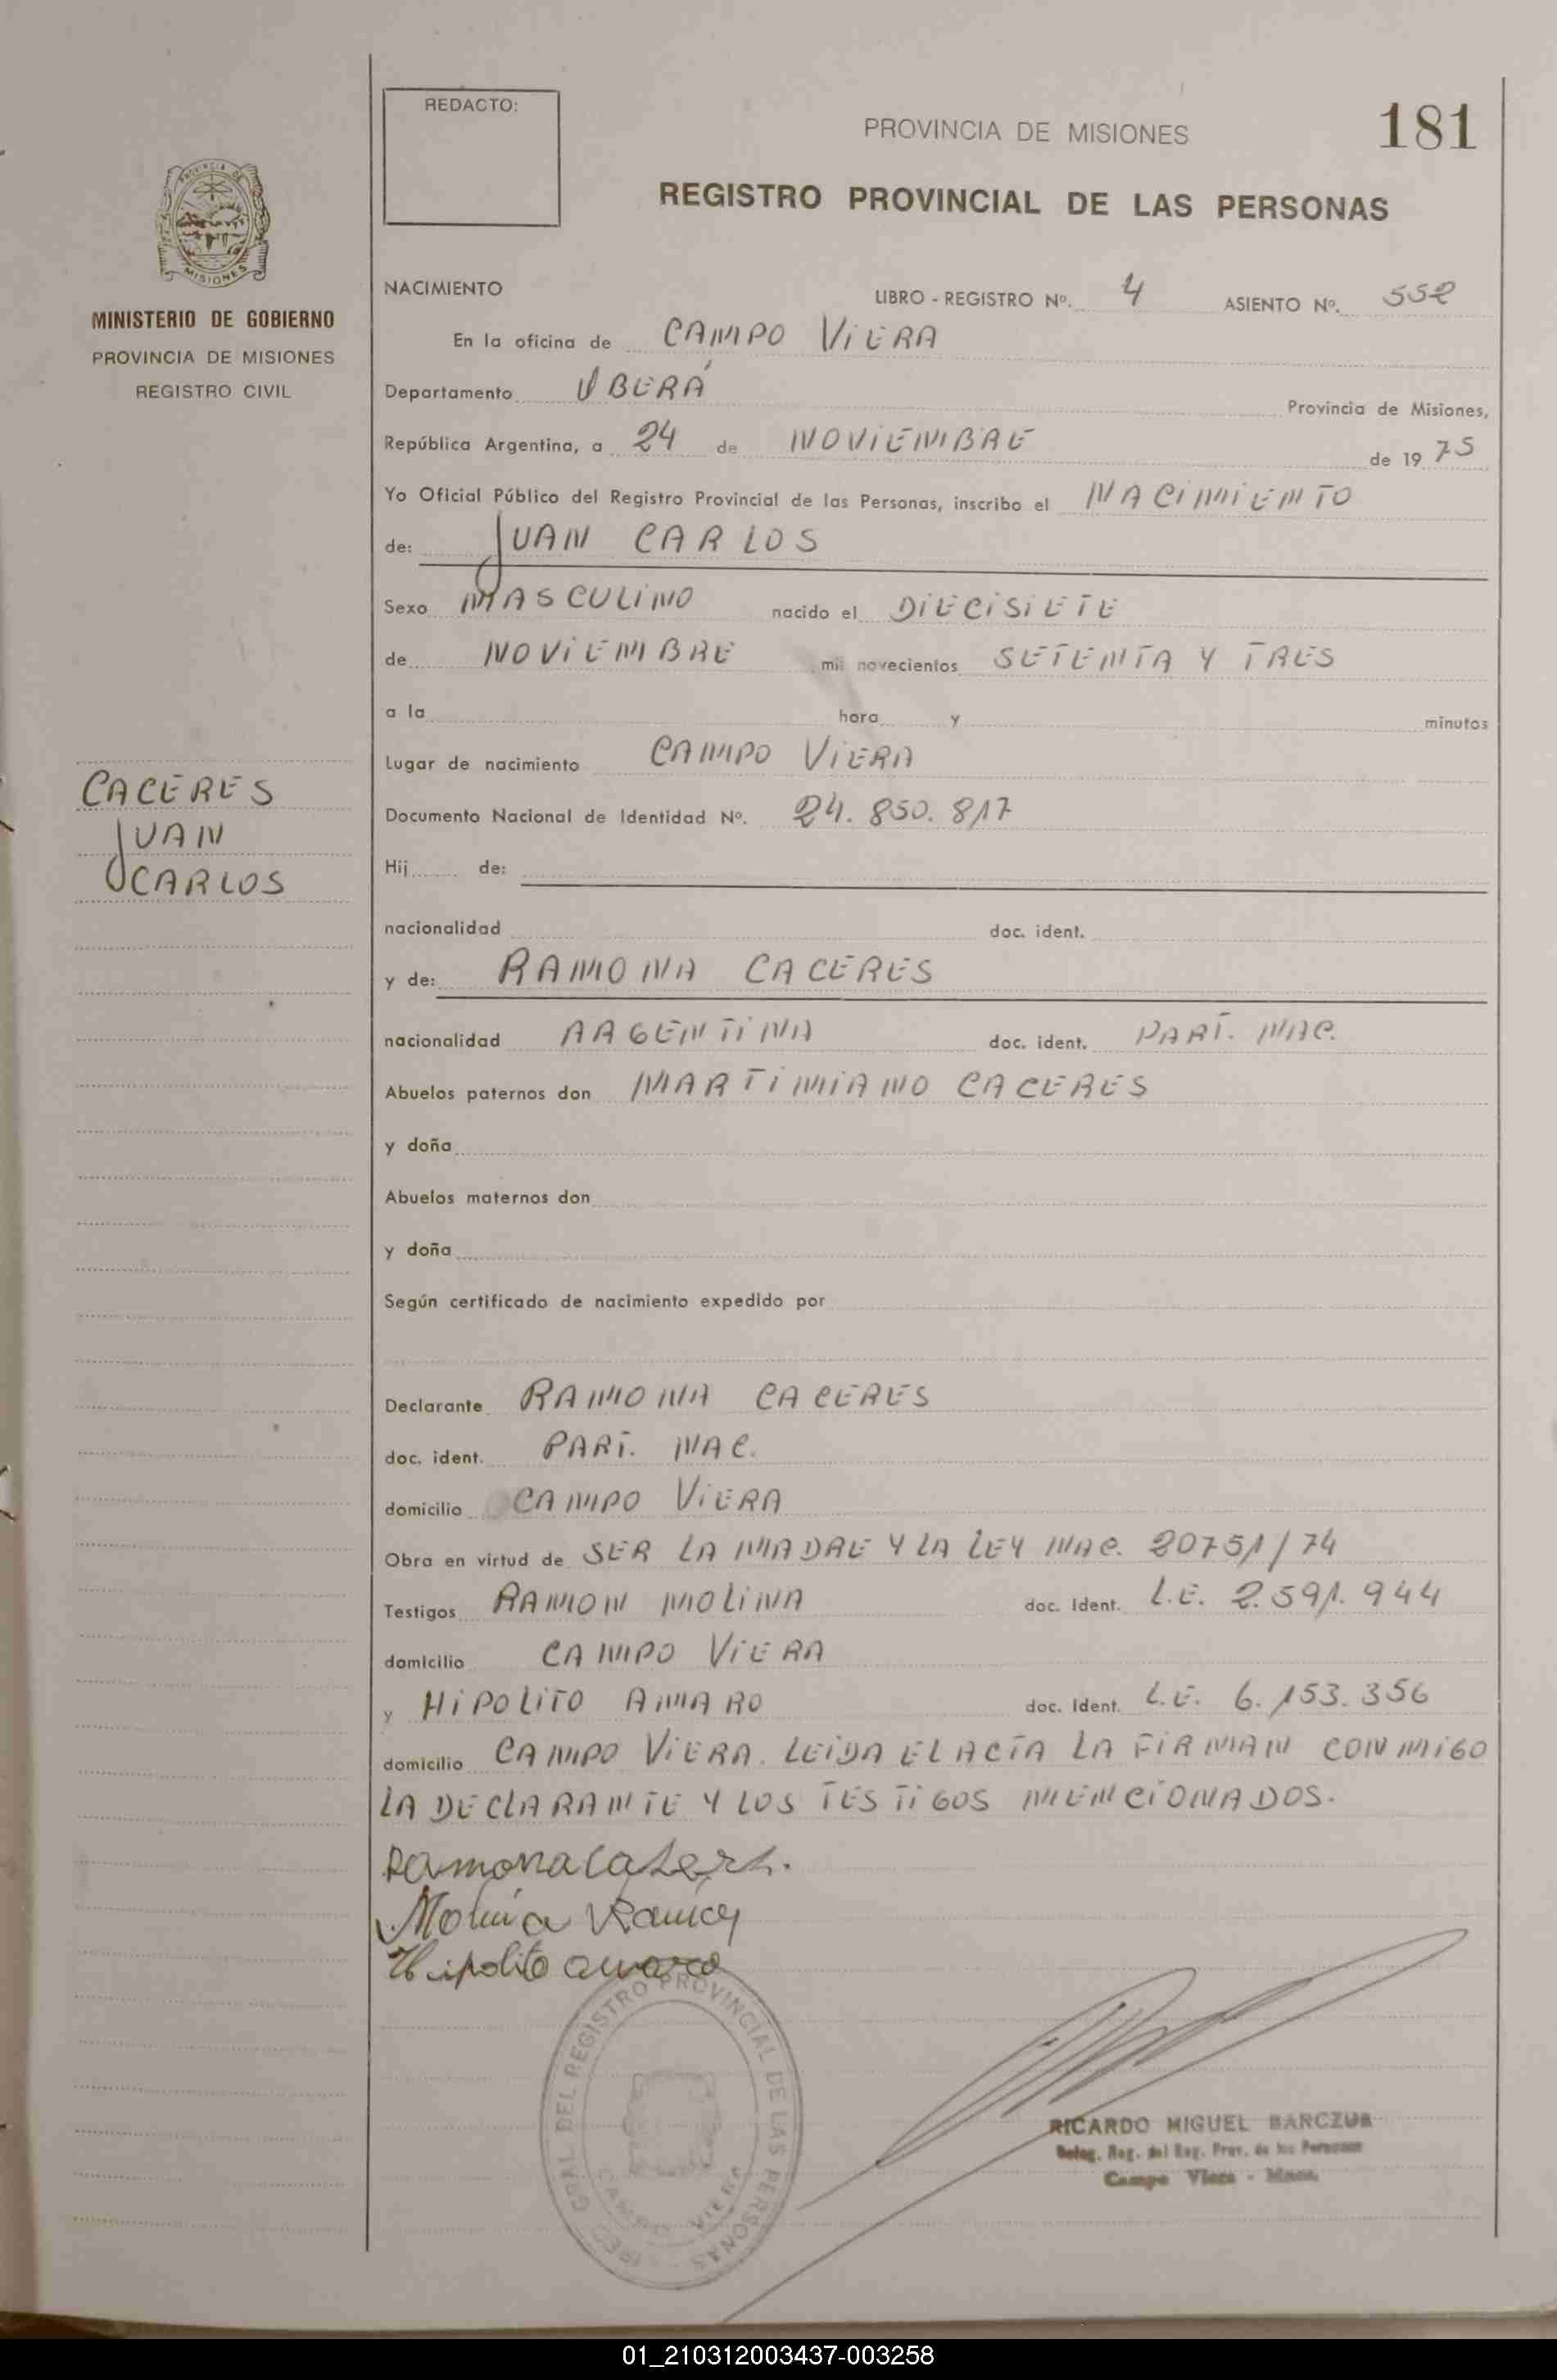 REDACTO:
PROVINCIA DE MISIONES
181
REGISTRO PROVINCIAL DE LAS PERSONAS
PROVINCIA DE
MISIONES
MINISTERIO DE GOBIERNO
PROVINCIA DE MISIONES
REGISTRO CIVIL
CACERES
JUAN
CARLOS
NACIMIENTO
LIBRO - REGISTRO Nº. 4 ASIENTO Nº. 552
En la oficina de CAMPO VIERA
Departamento UBERÁ Provincia de Misiones,
República Argentina, a 24 de NOVIEMBRE de 19 75
Yo Oficial Público del Registro Provincial de las Personas, inscribo el NACIMIENTO
de: JUAN CARLOS
Sexo MASCULINO nacido el DIECISIETE
de NOVIEMBRE mil novecientos SETENTA Y TRES
a la hora y minutos
Lugar de nacimiento CAMPO VIERA
Documento Nacional de Identidad Nº. 24.850.817
Hij de:
nacionalidad doc. ident.
y de: RAMONA CACERES
nacionalidad ARGENTINA doc. ident. PART. NAC.
Abuelos paternos don MARTIMIANO CACERES
y doña
Abuelos maternos don
y doña
Según certificado de nacimiento expedido por
Declarante RAMONA CACERES
doc. ident. PART. NAC.
domicilio CAMPO VIERA
Obra en virtud de SER LA MADRE Y LA LEY NAC. 20751/74
Testigos RAMON MOLINA doc. ident. L.E. 2.591.944
domicilio CAMPO VIERA
y HIPOLITO AMARO doc. ident. L.E. 6.153.356
domicilio CAMPO VIERA. LEIDA EL ACTA LA FIRMAN CONMIGO
LA DECLARANTE Y LOS TESTIGOS MENCIONADOS.
Molina Ramon
Hipolito amaro
GRAL. DEL REGISTRO PROVINCIAL DE LAS PERSONAS
CAMPO VIERA
RICARDO MIGUEL BARCZUK
Deleg. Reg. del Reg. Prov. de las Personas
Campo Viera - Mnes.
01_210312003437-003258